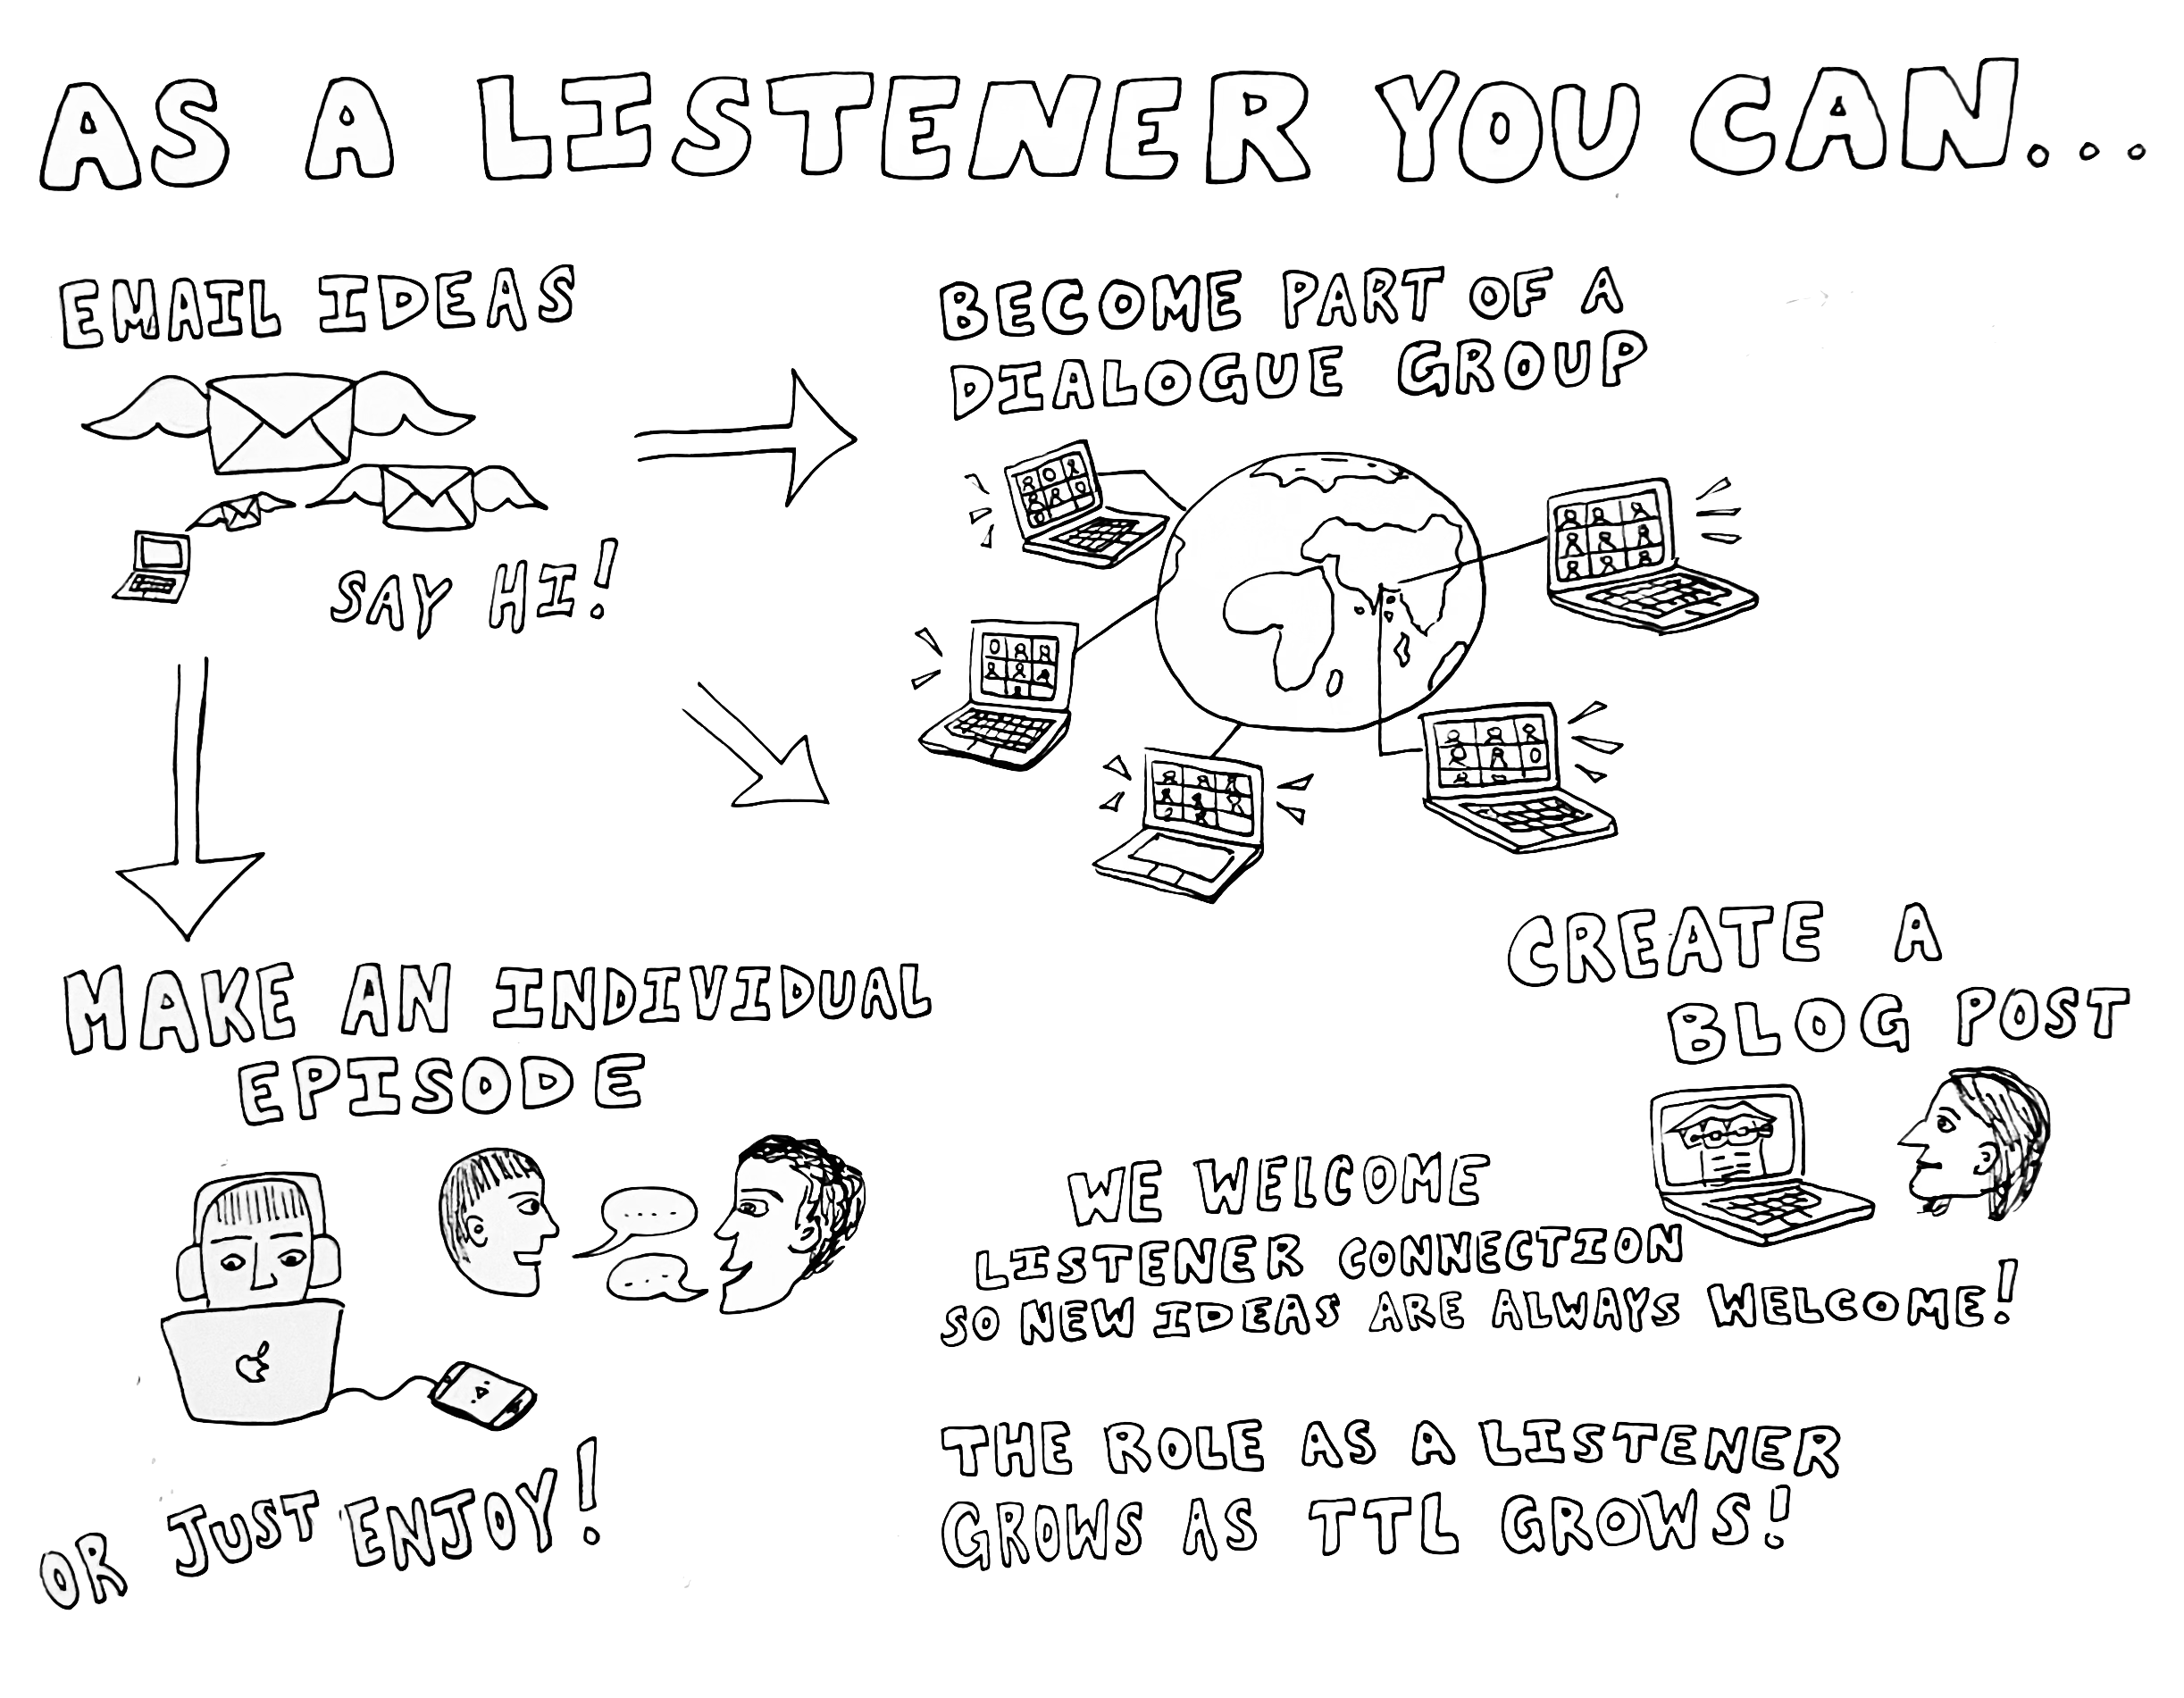 AS A LISTENER YOU CAN...
EMAIL IDEAS
SAY HI!
BECOME PART OF A
DIALOGUE GROUP
MAKE AN INDIVIDUAL
EPISODE
CREATE A
BLOG POST
WE WELCOME
LISTENER CONNECTION
SO NEW IDEAS ARE ALWAYS WELCOME!
OR JUST ENJOY!
THE ROLE AS A LISTENER
GROWS AS TTL GROWS!